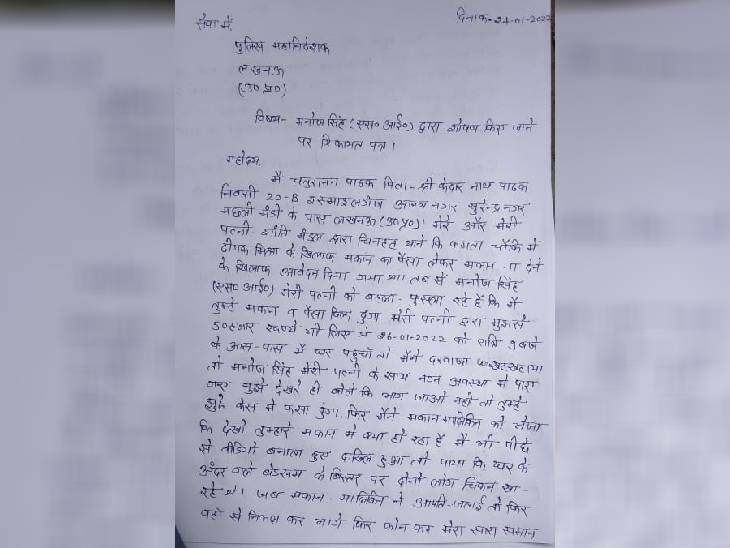 सेवा में,
दिनांक-24-01-2022
पुलिस महानिदेशक
लखनऊ
(उ०प्र०)
विषय- मनोज सिंह (एस० आई०) द्वारा शोषण किए जाने
पर शिकायत पत्र।
महोदय,
मैं चतुरानन पाठक पिता- श्री केदार नाथ पाठक
निवासी 22-B इस्माइलगंज सुरेन्द्र नगर
मछली मंडी के पास लखनऊ (उ०प्र०) मेरे और मेरी
पत्नी द्वारा चिनहट थाने कि कमता चौकी में
दीपक मिश्रा के खिलाफ मकान का पैसा लेकर मकान न देने
के खिलाफ आवेदन दिया गया था तब से मनोज सिंह
(एस० आई०) मेरी पत्नी को बहला-फुसला रहे हैं कि मैं
तुम्हे मकान व पैसा दिला दूंगा मेरी पत्नी द्वारा मुझसे
50 हजार रूपये भी लिए थे 06-01-2022 को रात्रि 9 बजे
के आस-पास मैं घर पहुँचा तो मैंने दरवाजा खटखटाया
तो मनोज सिंह मेरी पत्नी के साथ नग्न अवस्था में पाया
गया मुझे देखते ही बोले कि भाग जाओ नहीं तो तुम्हे
झूठे केस में फसा दूंगा, फिर मैंने मकान मालकिन को भेजा
कि देखो तुम्हारे मकान में क्या हो रहा है मैं भी पीछे
से वीडियो बनाता हुआ दाखिल हुआ तो पाया कि घर के
अंदर वाले बेडरूम के बिस्तर पर दोनों लोग चिकन खा
रहे थे। जब मकान मालकिन ने आपत्ति जताई तो फिर
वहाँ से निकल कर भागे फिर फोन कर मेरा सारा सामान